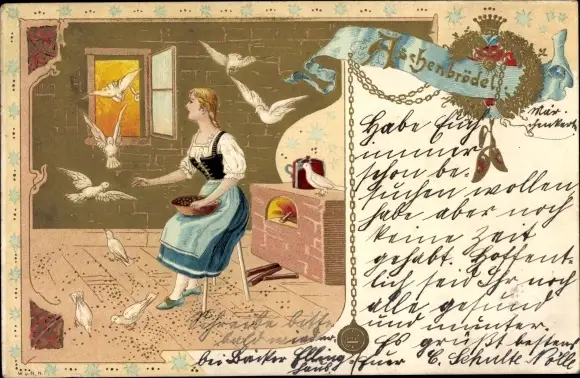 Aschenbrödel.
Mär-
chenkarte
Habe Euch
immer
schon be-
suchen wollen
habe aber noch
keine Zeit
gehabt. Hoffent-
lich seid Ihr noch
alle gesund
und munter.
Es grüßt bestens
Euer C. Schulte Nölle
Schreibe bitte
bald wieder.
bei Bäcker
haus